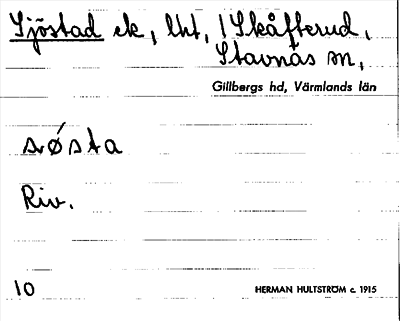 Sjöstad ek, lht, 1 Skåfterud,
Stavnäs sn,
Gillbergs hd, Värmlands län
sǿsta
Riv.
10
HERMAN HULTSTRÖM c. 1915